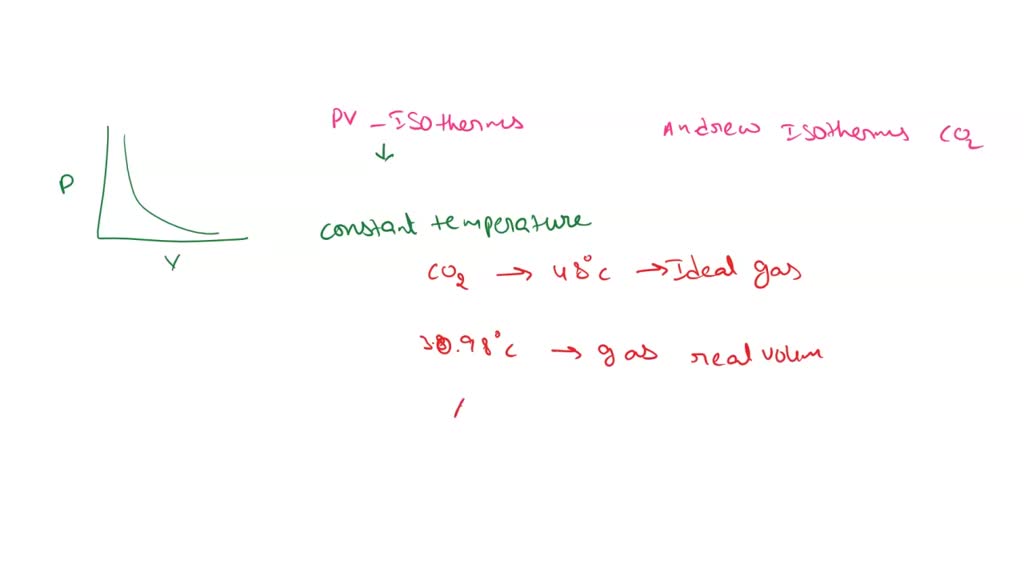 PV - Isotherms
Andrew Isotherms CO2
P
V
constant temperature
CO2 → 48°C → Ideal gas
30.98°C → gas real volum